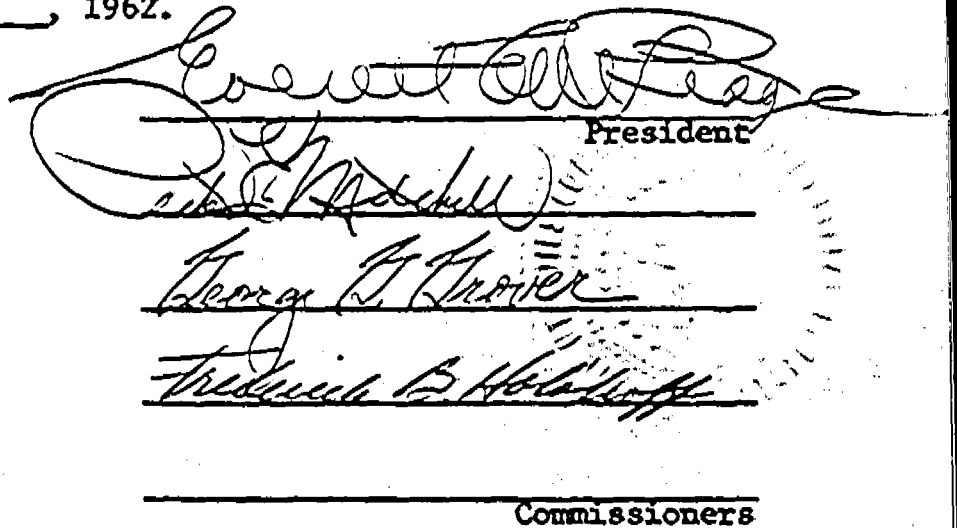 , 1962.
Everett
President
E. Mitchell
George G. Grover
Frederick B. Holoboff
Commissioners